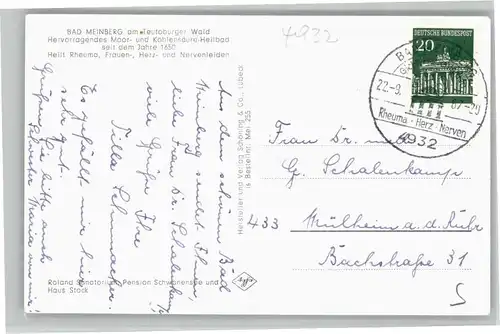 BAD MEINBERG am Teutoburger Wald
Hervorragendes Moor- und Kohlensäure-Heilbad
seit dem Jahre 1650
Heilt Rheuma, Frauen-, Herz- und Nervenleiden
4932
DEUTSCHE BUNDESPOST
20
22.-8.
67.-20
Rheuma · Herz · Nerven
4932
Aus dem schönen Bad
Meinberg sendet Ihnen,
liebe Frau Dr. Schalenkamp
viele Grüße Ihre
Tilla Schumacher.
Es gefällt mir hier
sehr gut.
Grüßen Sie bitte auch
Schwester Maria von mir!
Hersteller und Verlag Schöning & Co., Lübeck
Bestellnr. Mei. 255
Frau Dr. med.
G. Schalenkamp
433 Mülheim a.d. Ruhr
Bachstraße 31
Roland Sanatorium, Pension Schwanensee und
Haus Stock